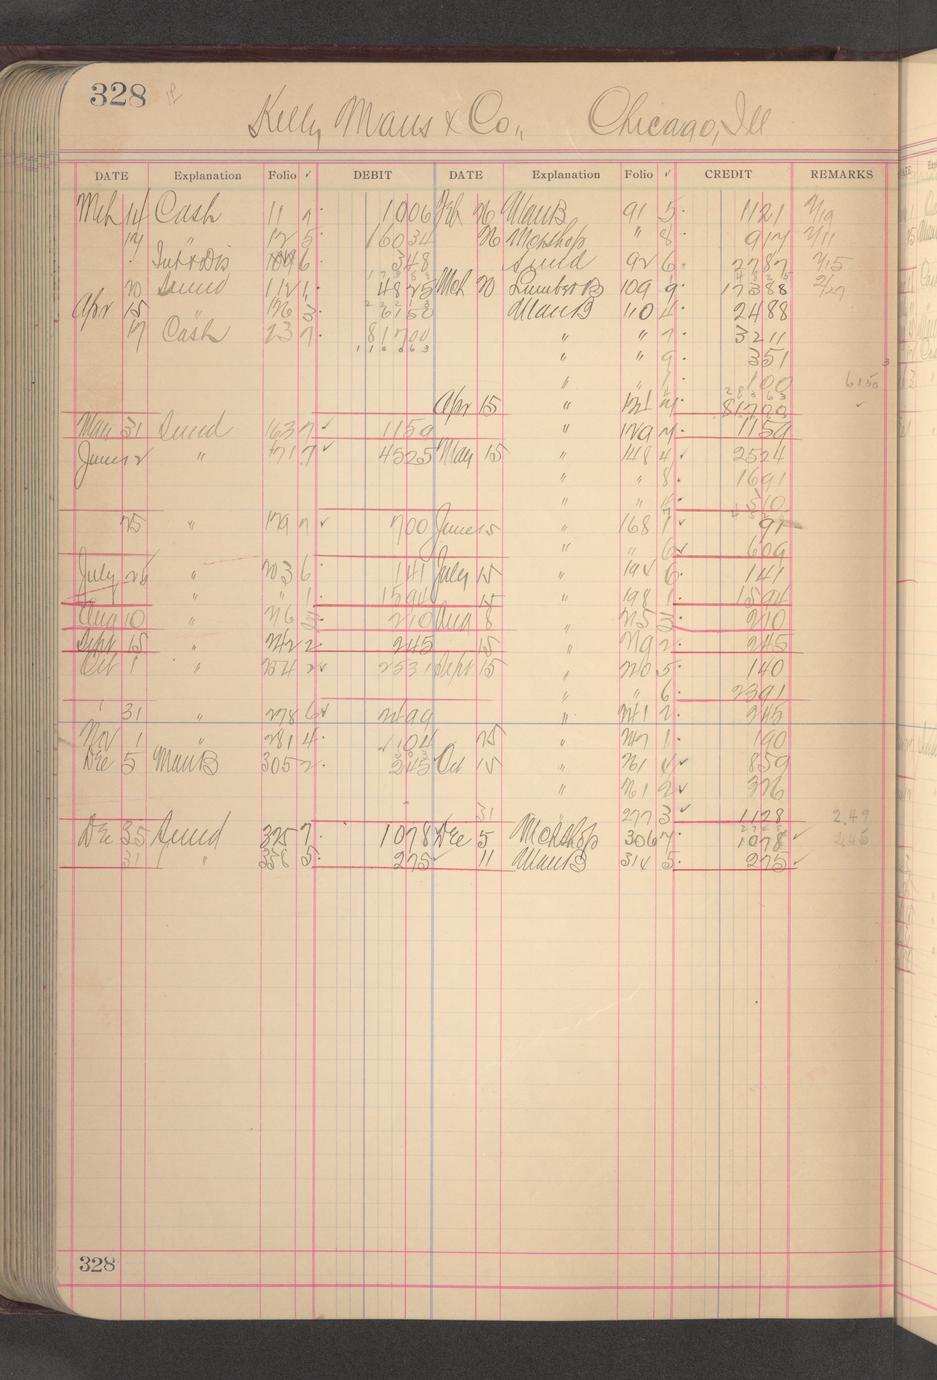 328
Kelly Maus & Co., Chicago, Ill
DATE Explanation Folio ✓ DEBIT DATE Explanation Folio ✓ CREDIT REMARKS
Mch 14 Cash 11 7 1006 Feb 26 ManB 91 5 1121 2/19
17 " 12 5 16034 26 Mchshop " 8 917 2/11
Int & Dis 6 348 Sund 92 6 2787 2/15
20 Sund 112 1 4825 Mch 20 LumberB 109 9 17388 2/27
Apr 15 " 126 3 6150 ManB 110 4 2488
17 Cash 137 7 81700 " " 7 3211
" " 9 351
" " 1 100 6150
Apr 15 " 131 81700
May 31 Sund 163 7 1159 " 129 1159
June 2 " 171 7 4525 May 15 " 148 4 2524
" " 8 1691
" " 310
25 " 179 7 700 June 15 " 168 1 91
" " 6 609
July 26 " 203 6 141 July 15 " 194 6 141
" " 1 1594 15 " 198 1 1594
Aug 10 " 216 210 Aug 8 " 215 210
Sept 15 " 242 2 245 15 " 219 2 245
Oct 1 " 254 2 2531 Sept 15 " 220 5 140
" " 6 2391
31 " 278 6 2499 " 241 2 245
Nov 1 " 281 4 1104 25 " 247 1 190
Dec 5 ManB 305 2 245 Oct 15 " 261 859
" 261 2 376
31 " 277 3 1128 2.49
Dec Sund 325 7 1078 Dec 5 Mchshop 306 7 1078 2.45
31 " 358 5 275 11 ManB 314 5 275
328